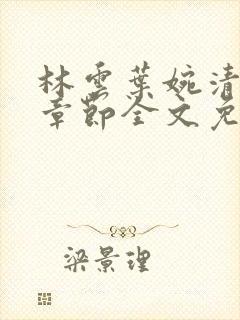 林雲葉婉清
章節全文免
梁景理